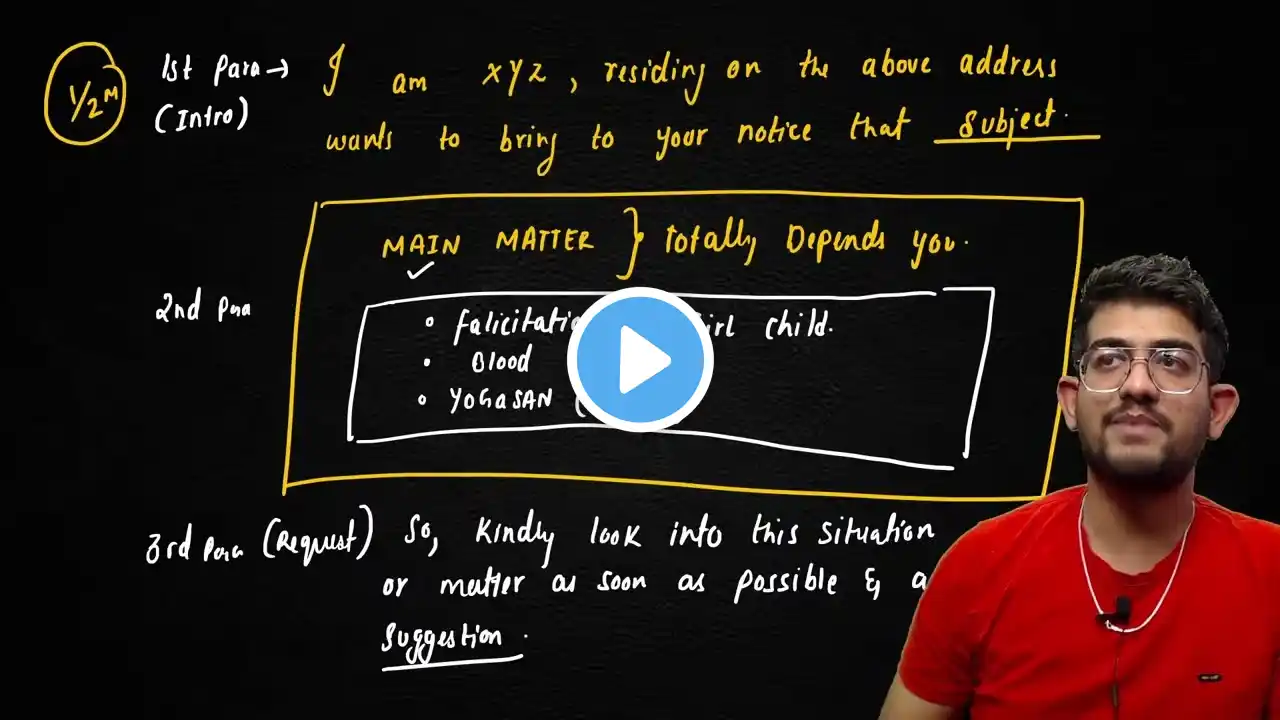 1/2 M
1st Para →
(Intro)
I am xyz, residing on the above address
wants to bring to your notice that Subject.
MAIN MATTER } totally Depends you.
2nd Para
• Child.
• Blood
• YOGASAN (
3rd Para (Request) So, Kindly look into this situation
or matter as soon as possible &
Suggestion.